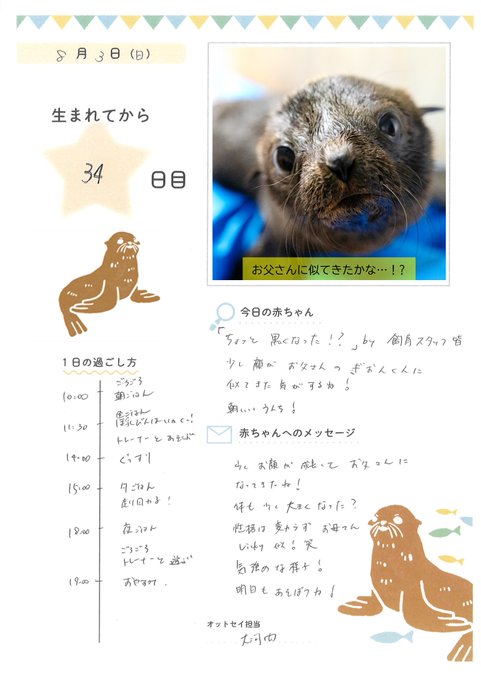 8月3日(日)
生まれてから
34
日目
お父さんに似てきたかな…!?
今日の赤ちゃん
「ちょっと黒くなった!?」by 飼育スタッフ皆
少し顔がお父さんのぎおんくんに
似てきた気がするね!
朝いいうんち!
1日の過ごし方
ごろごろ
10:00 朝ごはん
昼ごはん
11:30
トレーナーとあそぶ
14:00 ぐっすり
15:00 夕ごはん
走り回る!
18:00 夜ごはん
ごろごろ
トレーナーと遊ぶ
19:00 おやすみ.
赤ちゃんへのメッセージ
少しお顔が成長してお父さんに
なってきたね!
体も少し大きくなった?
性格は変わらずお母さん
似!笑
気強のな様子!
明日もあそぼうね!
オットセイ担当
大河内